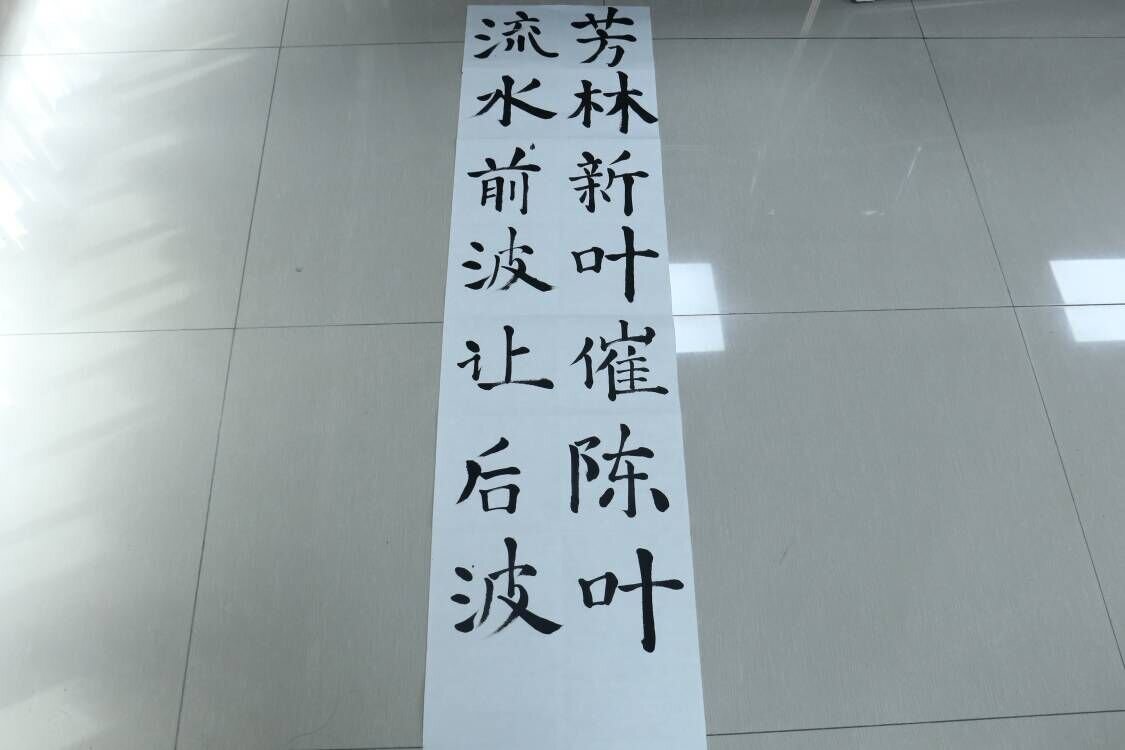 芳林新叶催陈叶
流水前波让后波